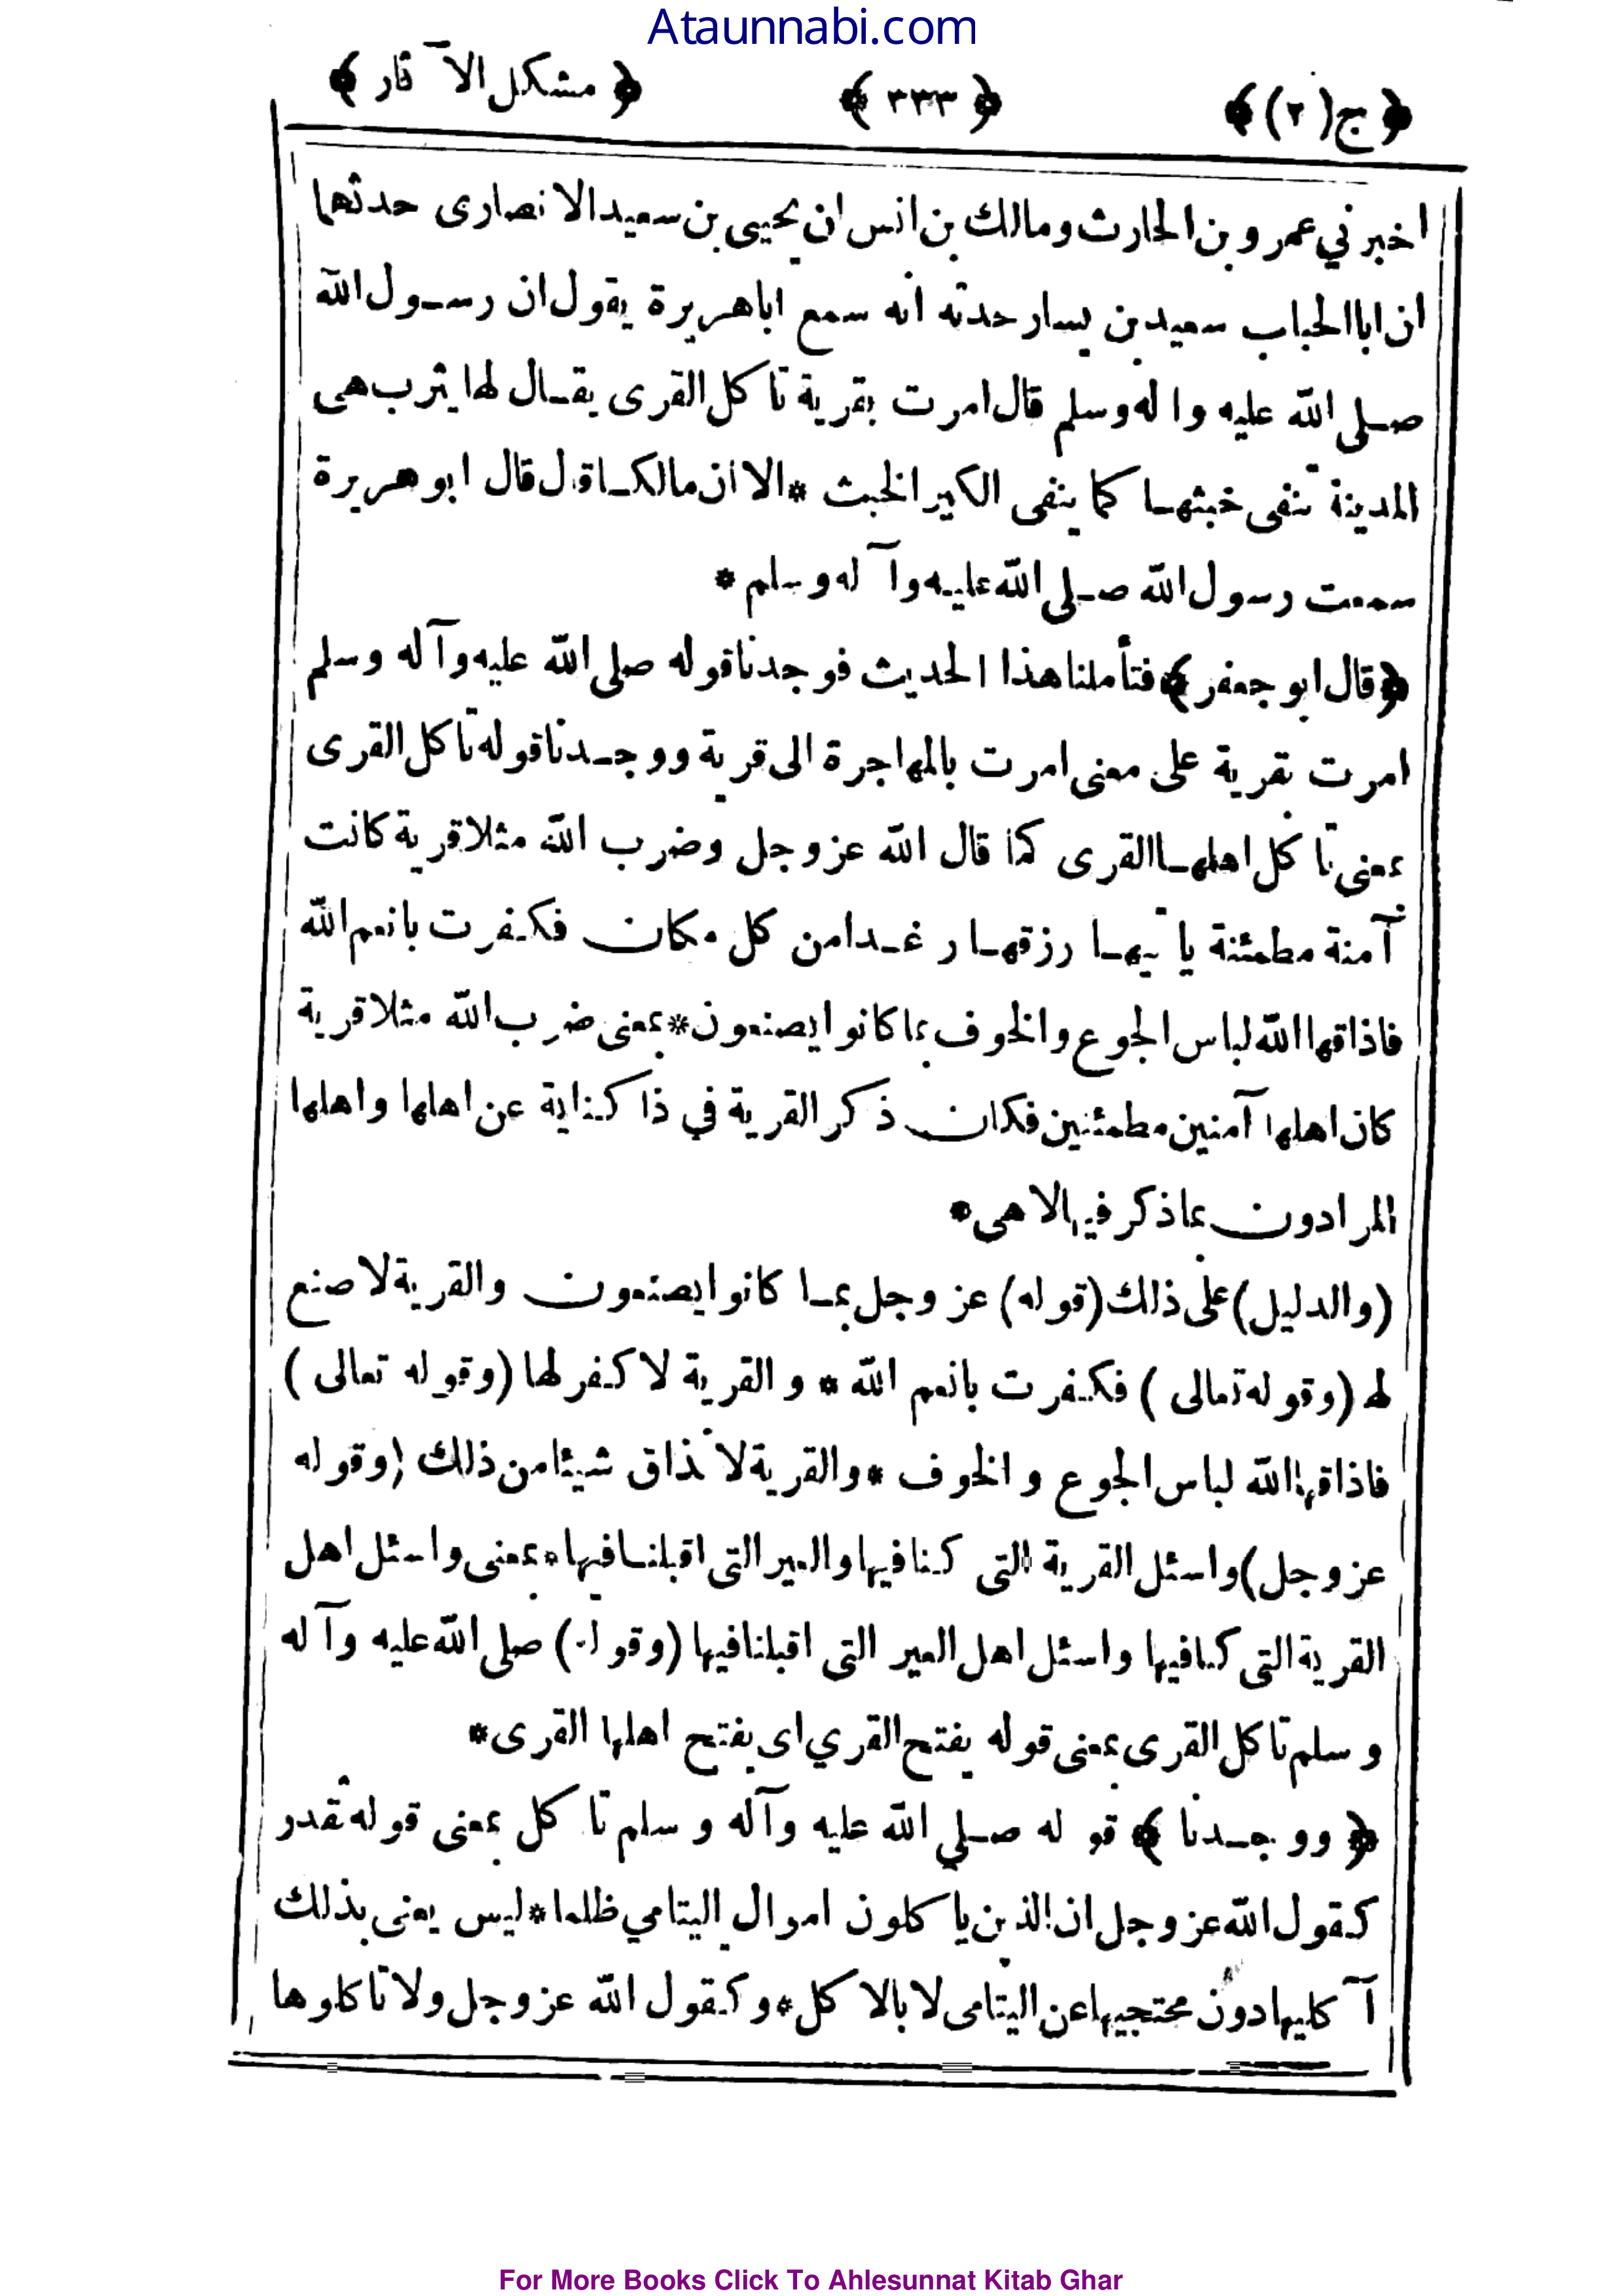 Ataunnabi.com
﴿ ج (٢) ﴾ ﴿ ٣٣٣ ﴾ ﴿ مشكل الآثار ﴾
اخبرني عمرو بن الحارث ومالك بن انس ان يحيى بن سعيد الانصارى حدثهما
ان ابا الحباب سعيد بن يسار حدثه انه سمع ابا هريرة يقول ان رسول الله
صلى الله عليه واله وسلم قال امرت بقرية تاكل القرى يقال لها يثرب هى
المدينة تنفى خبثها كما ينفى الكير الخبث * الا ان مالكا قال قال ابو هريرة
سمعت رسول الله صلى الله عليه وآله وسلم *
﴿ قال ابو جعفر ﴾ فتأملنا هذا الحديث فوجدنا قوله صلى الله عليه وآله وسلم
امرت بقرية على معنى امرت بالمهاجرة الى قرية ووجدنا قوله تاكل القرى
بمعنى تاكل اهلها القرى كما قال الله عز وجل وضرب الله مثلا قرية كانت
آمنة مطمئنة ياتيها رزقها رغدا من كل مكان فكفرت بانعم الله
فاذاقها الله لباس الجوع والخوف بما كانوا يصنعون * بمعنى ضرب الله مثلا قرية
كان اهلها آمنين مطمئنين فكان ذكر القرية في ذا كناية عن اهلها واهلها
المرادون بما ذكر فيها لا هى *
(والدليل) على ذلك (قوله) عز وجل بما كانوا يصنعون والقرية لا صنع
لها (وقوله تعالى) فكفرت بانعم الله * والقرية لا كفر لها (وقوله تعالى)
فاذاقها الله لباس الجوع والخوف * والقرية لا تذاق شيئا من ذلك (وقوله
عز وجل) واسئل القرية التى كنا فيها والعير التى اقبلنا فيها * بمعنى واسئل اهل
القرية التى كنا فيها واسئل اهل العير التى اقبلنا فيها (وقوله) صلى الله عليه وآله
وسلم تاكل القرى بمعنى قوله يفتح القري اى يفتح اهلها القرى *
﴿ ووجدنا ﴾ قوله صلى الله عليه وآله وسلم تاكل بمعنى قوله تقدر
كقول الله عز وجل ان الذين ياكلون اموال اليتامي ظلما * ليس يعنى بذلك
آكليها دون محتجبيها عن اليتامى لا بالاكل * وكقول الله عز وجل ولا تاكلوها
For More Books Click To Ahlesunnat Kitab Ghar